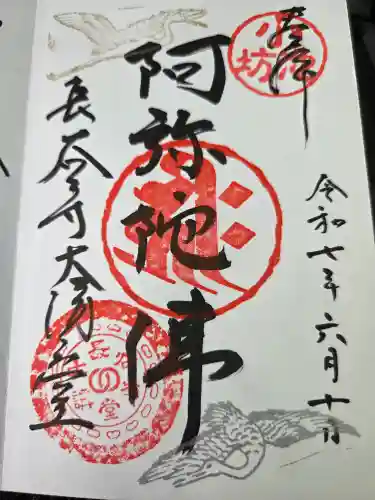 奉拝
令和七年六月十日
阿弥陀佛
長谷寺大満堂